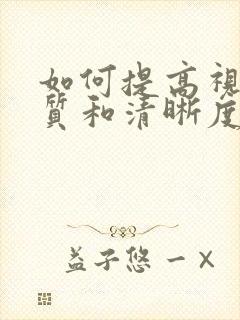 如何提高視
質和清晰度
益子悠一 ×